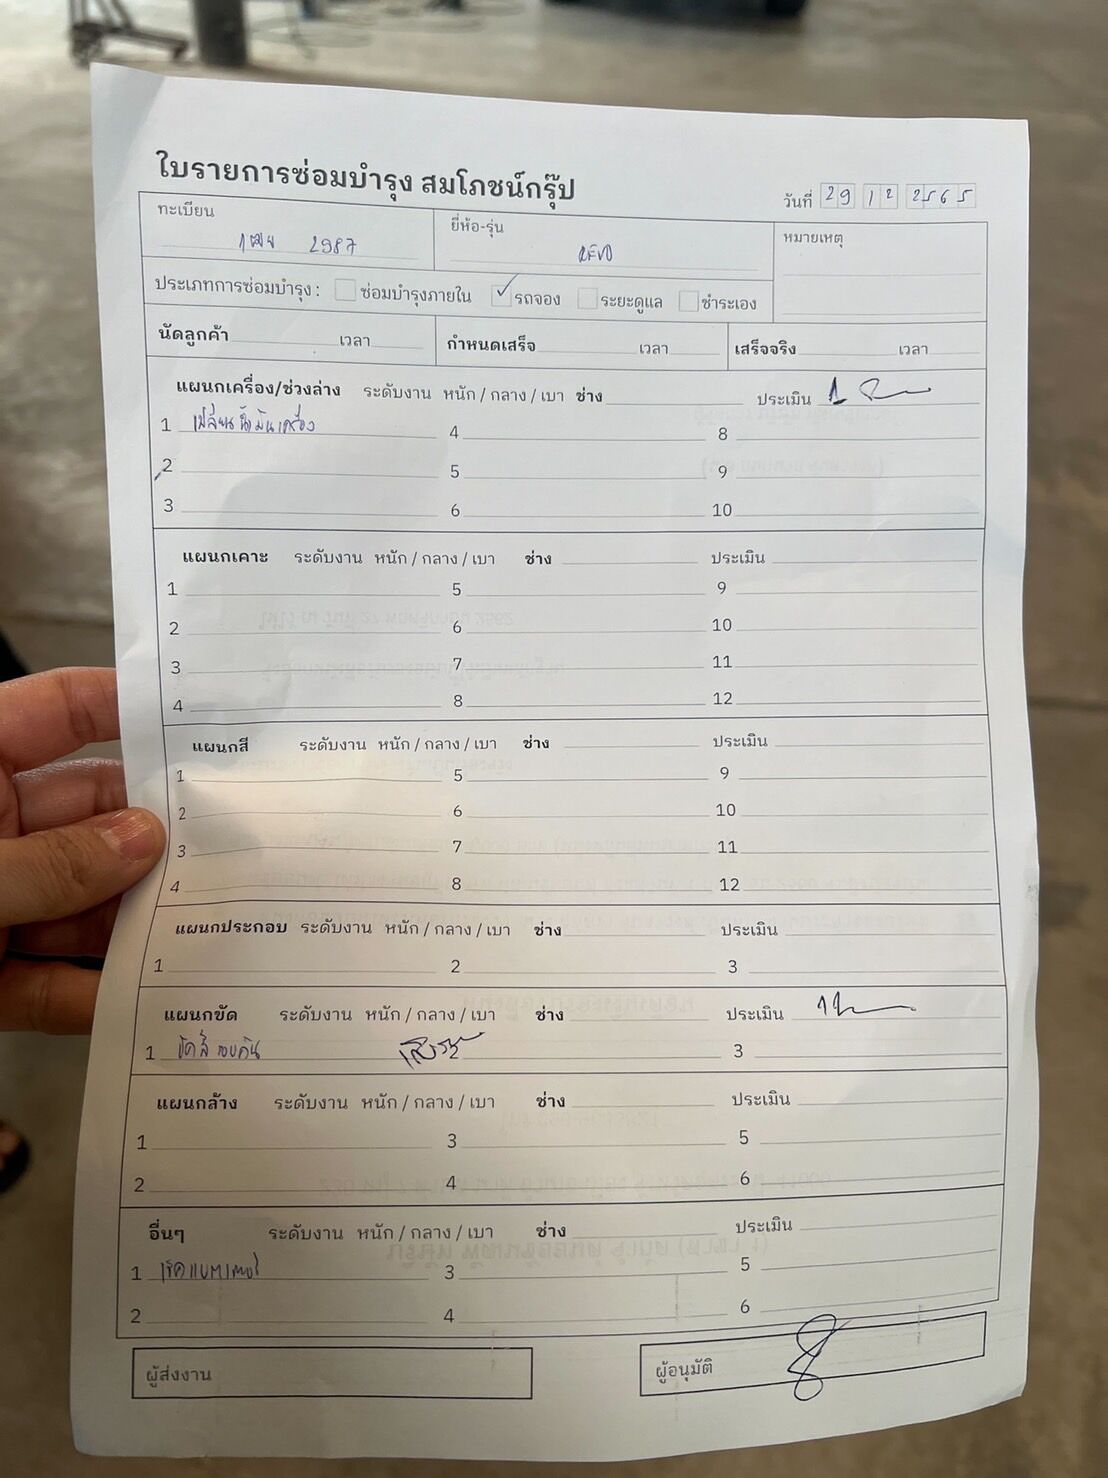 ใบรายการซ่อมบำรุง สมโภชน์กรุ๊ป
วันที่ 29 12 2565
ทะเบียน 2987
ยี่ห้อ-รุ่น REVO
หมายเหตุ
ประเภทการซ่อมบำรุง : ซ่อมบำรุงภายใน รถจอง ระยะดูแล ชำระเอง
นัดลูกค้า เวลา กำหนดเสร็จ เวลา เสร็จจริง เวลา
แผนกเครื่อง/ช่วงล่าง ระดับงาน หนัก / กลาง / เบา ช่าง ประเมิน
1 เปลี่ยนน้ำมันเครื่อง 4 8
2 5 9
3 6 10
แผนกเคาะ ระดับงาน หนัก / กลาง / เบา ช่าง ประเมิน
1 5 9
2 6 10
3 7 11
4 8 12
แผนกสี ระดับงาน หนัก / กลาง / เบา ช่าง ประเมิน
1 5 9
2 6 10
3 7 11
4 8 12
แผนกประกอบ ระดับงาน หนัก / กลาง / เบา ช่าง ประเมิน
1 2 3
แผนกขัด ระดับงาน หนัก / กลาง / เบา ช่าง ประเมิน
1 ขัดสีรอบคัน 3
แผนกล้าง ระดับงาน หนัก / กลาง / เบา ช่าง ประเมิน
1 3 5
2 4 6
อื่นๆ ระดับงาน หนัก / กลาง / เบา ช่าง ประเมิน
1 เช็คแบตเตอรี่ 3 5
2 4 6
ผู้ส่งงาน ผู้อนุมัติ